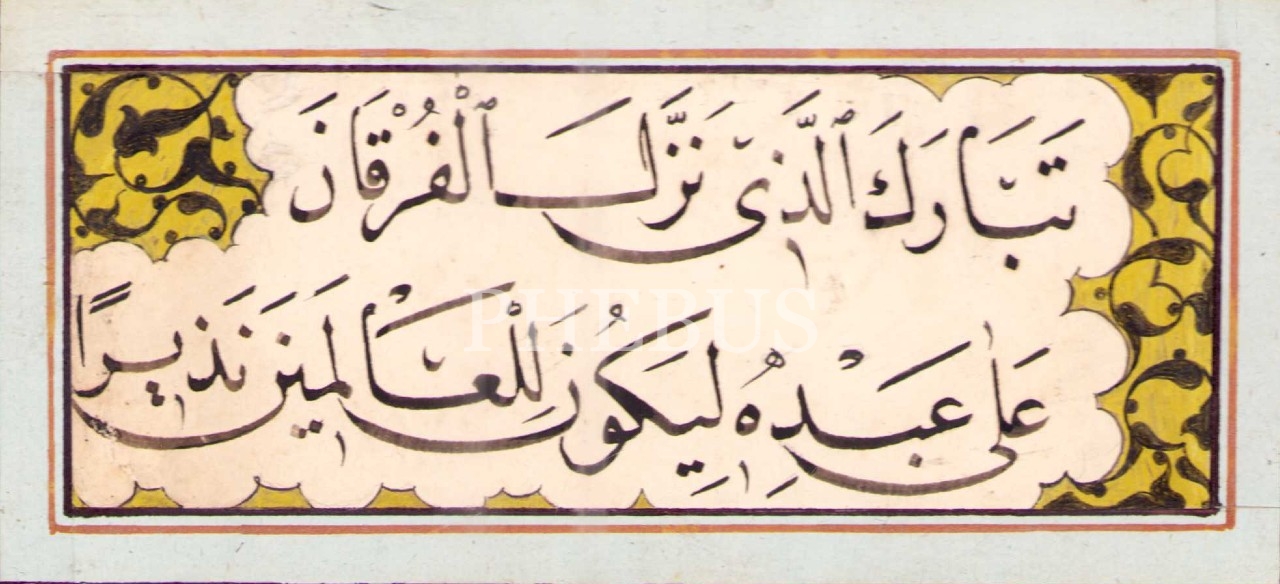 تَبَارَكَ ٱلَّذِى نَزَّلَ ٱلْفُرْقَانَ
عَلَى عَبْدِهِ لِيَكُونَ لِلْعَالَمِينَ نَذِيرًا
PHEBUS